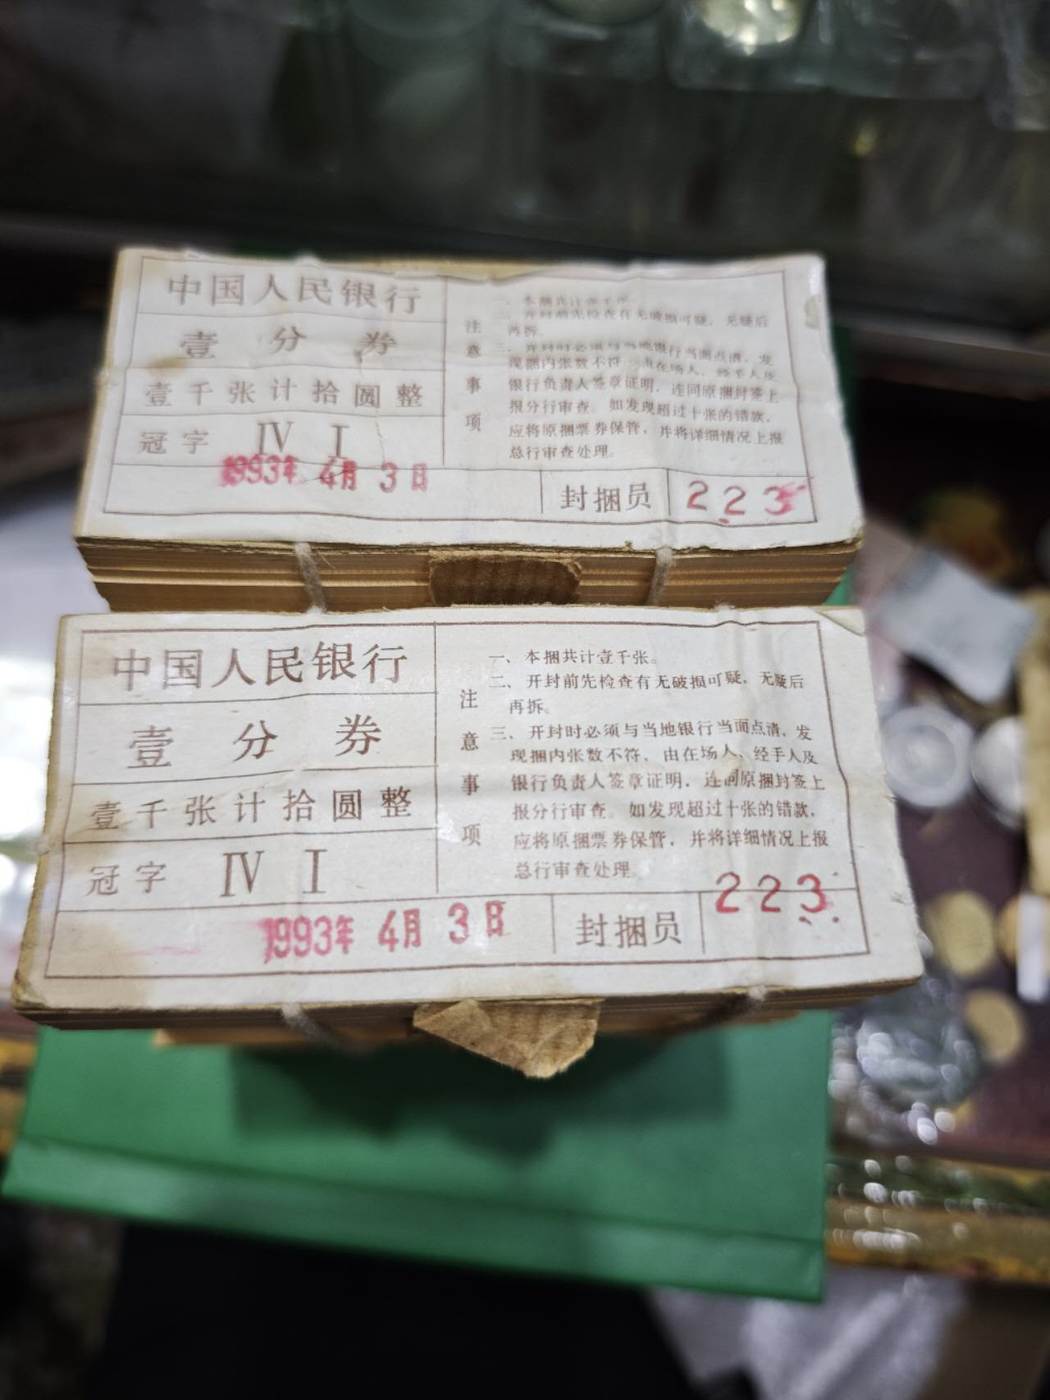 中国人民银行
壹分券
壹千张计拾圆整
冠字 Ⅳ Ⅰ
1993年 4月 3日
注意事项
一、本捆共计壹千张。
二、开封前先检查有无破损可疑，无疑后
再拆。
三、开封时必须与当地银行当面点清，发
现捆内张数不符，由在场人、经手人及
银行负责人签章证明，连同原捆封签上
报分行审查。如发现超过十张的错款，
应将原捆票券保管，并将详细情况上报
总行审查处理。
封捆员 223
中国人民银行
壹分券
壹千张计拾圆整
冠字 Ⅳ Ⅰ
1993年 4月 3日
注意事项
一、本捆共计壹千张。
二、开封前先检查有无破损可疑，无疑后
再拆。
三、开封时必须与当地银行当面点清，发
现捆内张数不符，由在场人、经手人及
银行负责人签章证明，连同原捆封签上
报分行审查。如发现超过十张的错款，
应将原捆票券保管，并将详细情况上报
总行审查处理。
封捆员 223